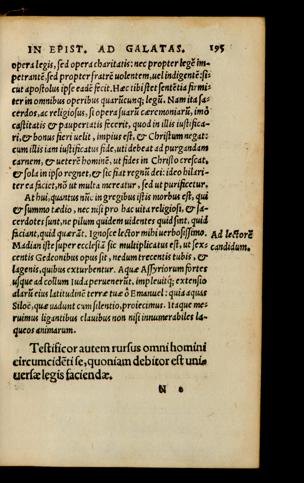 IN EPIST. AD GALATAS. 195
opera legis, sed opera charitatis: nec propter legē im-
petrantē, sed propter fratrē uolentem, uel indigentē: si-
cut apostolus ipse eadē fecit. Haec tibi stet sententia firmi-
ter in omnibus operibus quarūcunq; legū. Nam ita sa-
cerdos, ac religiosus, si opera suarū caeremoniarū, imò
castitatis & paupertatis fecerit, quod in illis iustifica-
ri, & bonus fieri uelit, impius est, & Christum negat:
cum illis iam iustificatus fide, uti debeat ad purgandam
carnem, & ueterē hominē, ut fides in Christo crescat,
& sola in ipso regnet, & sic fiat regnū dei: ideo hilari-
ter ea faciet, nō ut multa mereatur, sed ut purificetur.
At hui, quantus nūc in gregibus istis morbus est, qui
& summo taedio, nec nisi pro hac uita religiosi, & sa-
cerdotes sunt, ne pilum quidem uidentes quid sint, quid
faciant, quid quaerāt. Ignosce lector mihi uerbosissimo.
Madian iste super ecclesiā sic multiplicatus est, ut sex-
centis Gedeonibus opus sit, nedum trecentis tubis, &
lagenis, quibus exturbentur. Aquae Assyriorum fortes
usque ad collum Iuda peruenerūt, impleuitq; extensio
alarū eius latitudinē terrae tuae ô Emanuel: quia aquas
Siloë, quae uadunt cum silentio, proiecimus. Itaque me-
ruimus ligantibus clauibus non nisi innumerabiles la-
queos animarum.
Ad lectorē
candidum.
Testificor autem rursus omni homini
circumcidēti se, quoniam debitor est uni-
uersae legis faciendae.
N